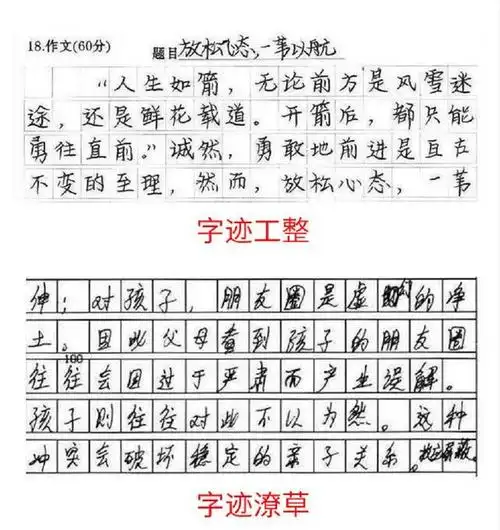 18.作文(60分) 题目 放松心态,一苇以航
“人生如箭,无论前方是风雪迷
途,还是鲜花载道。开箭后,都只能
勇往直前。”诚然,勇敢地前进是亘古
不变的至理,然而,放松心态,一苇
字迹工整
伸;对孩子,朋友圈是虚的净
土。因此父母看到孩子的朋友圈
100
往往会因过于严肃而产生误解。
孩子则往往对此不以为然。这种
冲突会破坏稳定的亲子关系。
字迹潦草